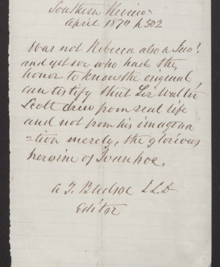 Southern Review
April 1877 p. 502
Was not Rebecca also a Jew?
and yet we who had the
honor to know the original
can testify that Sir Walter
Scott drew from real life
and not from his imagina
-tion merely, the glorious
heroine of Ivanhoe.
A. T. Bledsoe LLD
Editor